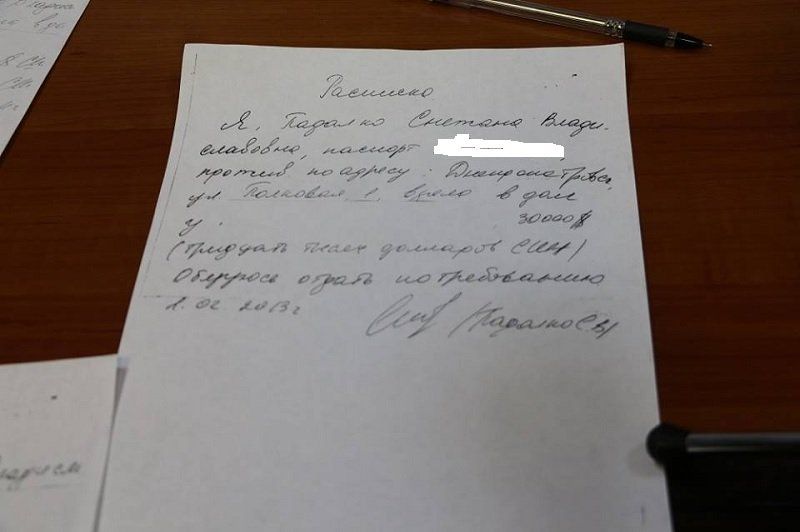 Расписка
Я, Падалко Снежана Влади-
славовна, паспорт
прожив. по адресу: Днепропетровск,
ул Полковая 1, взяла в долг
у 30000$
(тридцать тысяч долларов США)
Обязуюсь отдать по требованию
1.02.2013г
(Падалко СВ)